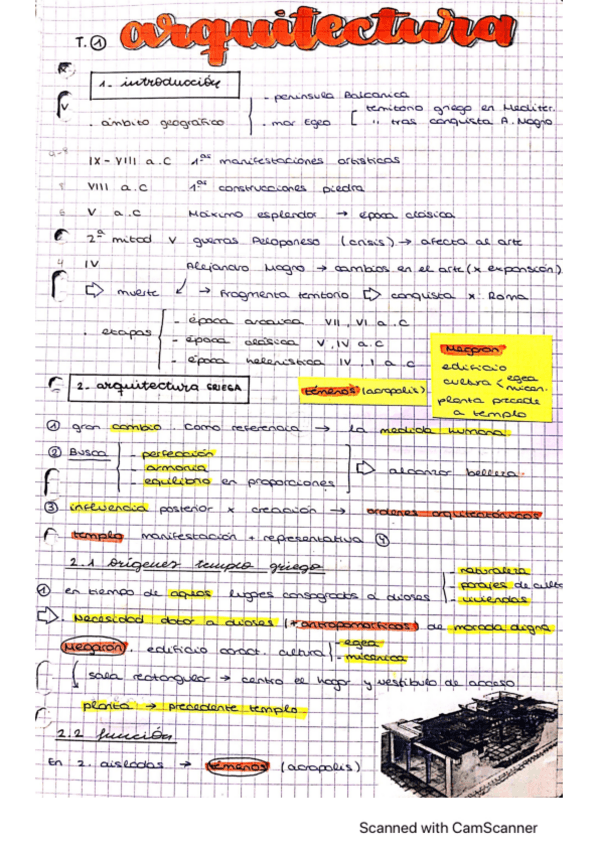 T. ① arquitectura
1. introducción
. ámbito geográfico
- península Balcánica
- mar Egeo [ territorio griego en Mediter.
" tras conquista A. Magno
IX - VIII a.C 1as manifestaciones artísticas
VIII a.C 1as construcciones piedra
V a.C Máximo esplendor → época clásica
2ª mitad V guerras Peloponeso (crisis) → afecta al arte
IV Alejandro Magno → cambios en el arte (x expansión)
⇨ muerte → Fragmenta territorio ⇨ conquista x Roma
. etapas
- época arcaica VII, VI a.C
- época clásica V, IV a.C
- época helenística IV, I a.C
Megaron
edificio
cultura < egea
micen.
planta precede
a templo
2. arquitectura GRIEGA
témenos (acropolis)
① gran cambio. Como referencia → la medida humana
② Busca
- perfección
- armonía
- equilibrio en proporciones
⇨ alcanzar belleza
③ influencia posterior x creación → ordenes arquitectónicos
templo manifestación + representativa ④
2.1 orígenes templo griego
① en tiempo de aqueos lugares consagrados a dioses
- naturaleza
- parajes de culto
- viviendas
⇨. Necesidad dotar a dioses (+ antropomórficos) de morada digna
Megaron. edificio caract. cultura
- egea
- micénica
sala rectangular → centro el hogar y vestíbulo de acceso
planta → precedente templo
2.2 función
En z. aisladas → témenos (acropolis)
Scanned with CamScanner